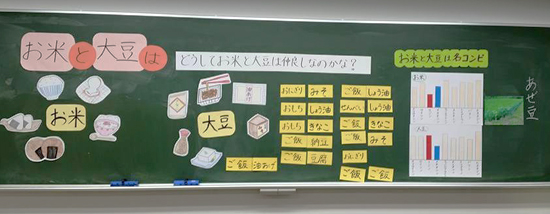 お米と大豆は
どうしてお米と大豆は仲良しなのかな?
お米と大豆は名コンビ
お米
大豆
おにぎり みそ
おもち しょう油
おもち きなこ
ご飯 納豆
ご飯 豆腐
ご飯 油あげ
ご飯 しょう油
せんべい しょう油
ご飯 きなこ
ご飯 みそ
おにぎり
ご飯 ご飯
お米
大豆
あぜ豆